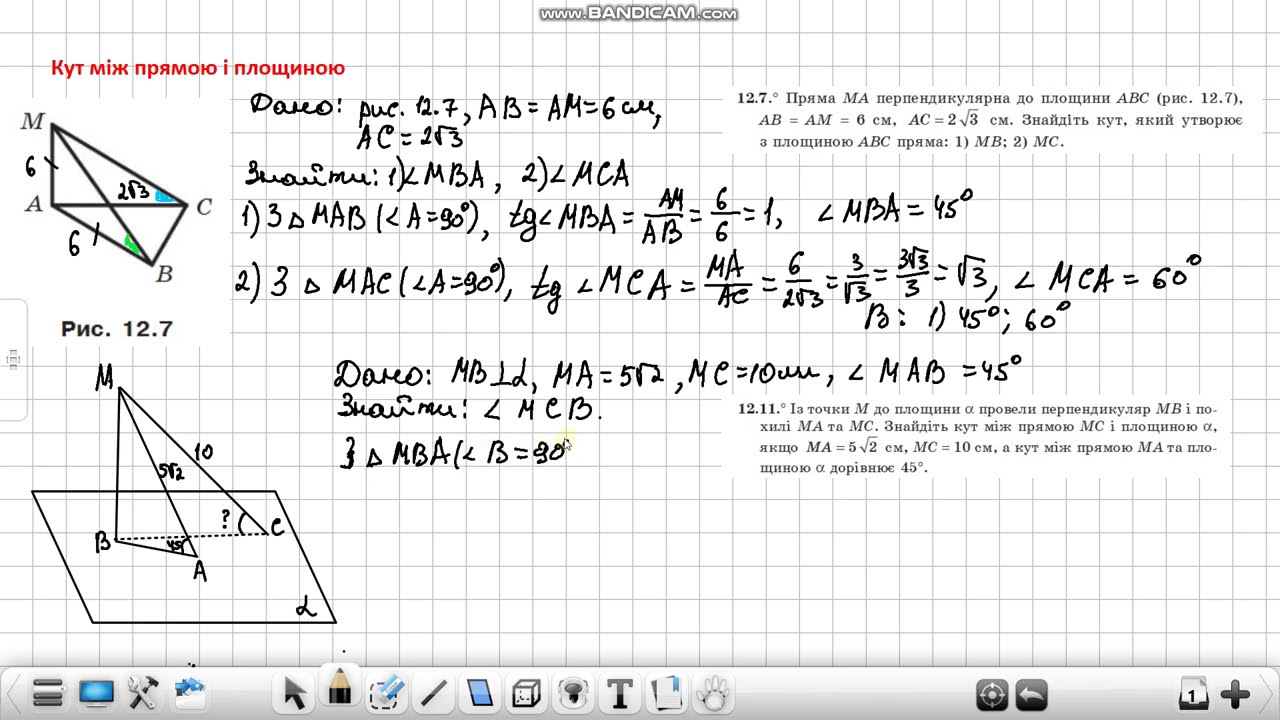 www.BANDICAM.com
Кут між прямою і площиною
Дано: рис. 12.7, AB = AM = 6 см,
AC = 2√3
Знайти: 1) ∠MBA, 2) ∠MCA
1) З △ MAB (∠A = 90°), tg ∠MBA = AM/AB = 6/6 = 1, ∠MBA = 45°
2) З △ MAC (∠A = 90°), tg ∠MCA = MA/AC = 6/2√3 = 3/√3 = 3√3/3 = √3, ∠MCA = 60°
В: 1) 45°; 60°
12.7.° Пряма MA перпендикулярна до площини ABC (рис. 12.7),
AB = AM = 6 см, AC = 2√3 см. Знайдіть кут, який утворює
з площиною ABC пряма: 1) MB; 2) MC.
M
6
2√3
A
C
6
B
Рис. 12.7
Дано: MB⊥α, MA = 5√2, MC = 10 см, ∠MAB = 45°
Знайти: ∠MCB.
З △ MBA (∠B = 90°
12.11.° Із точки M до площини α провели перпендикуляр MB і по-
хилі MA та MC. Знайдіть кут між прямою MC і площиною α,
якщо MA = 5√2 см, MC = 10 см, а кут між прямою MA та пло-
щиною α дорівнює 45°.
M
10
5√2
?
B
C
45°
A
α
T
1